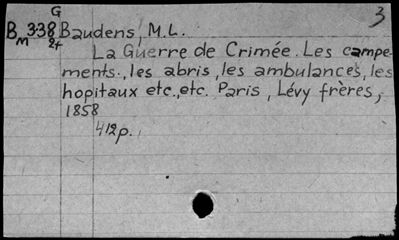 G 3
B 338 Baudens, M.L.
M 2t
La Guerre de Crimée. Les campe-
ments., les abris, les ambulances, les
hopitaux etc., etc. Paris, Lévy frères,
1858
412p.